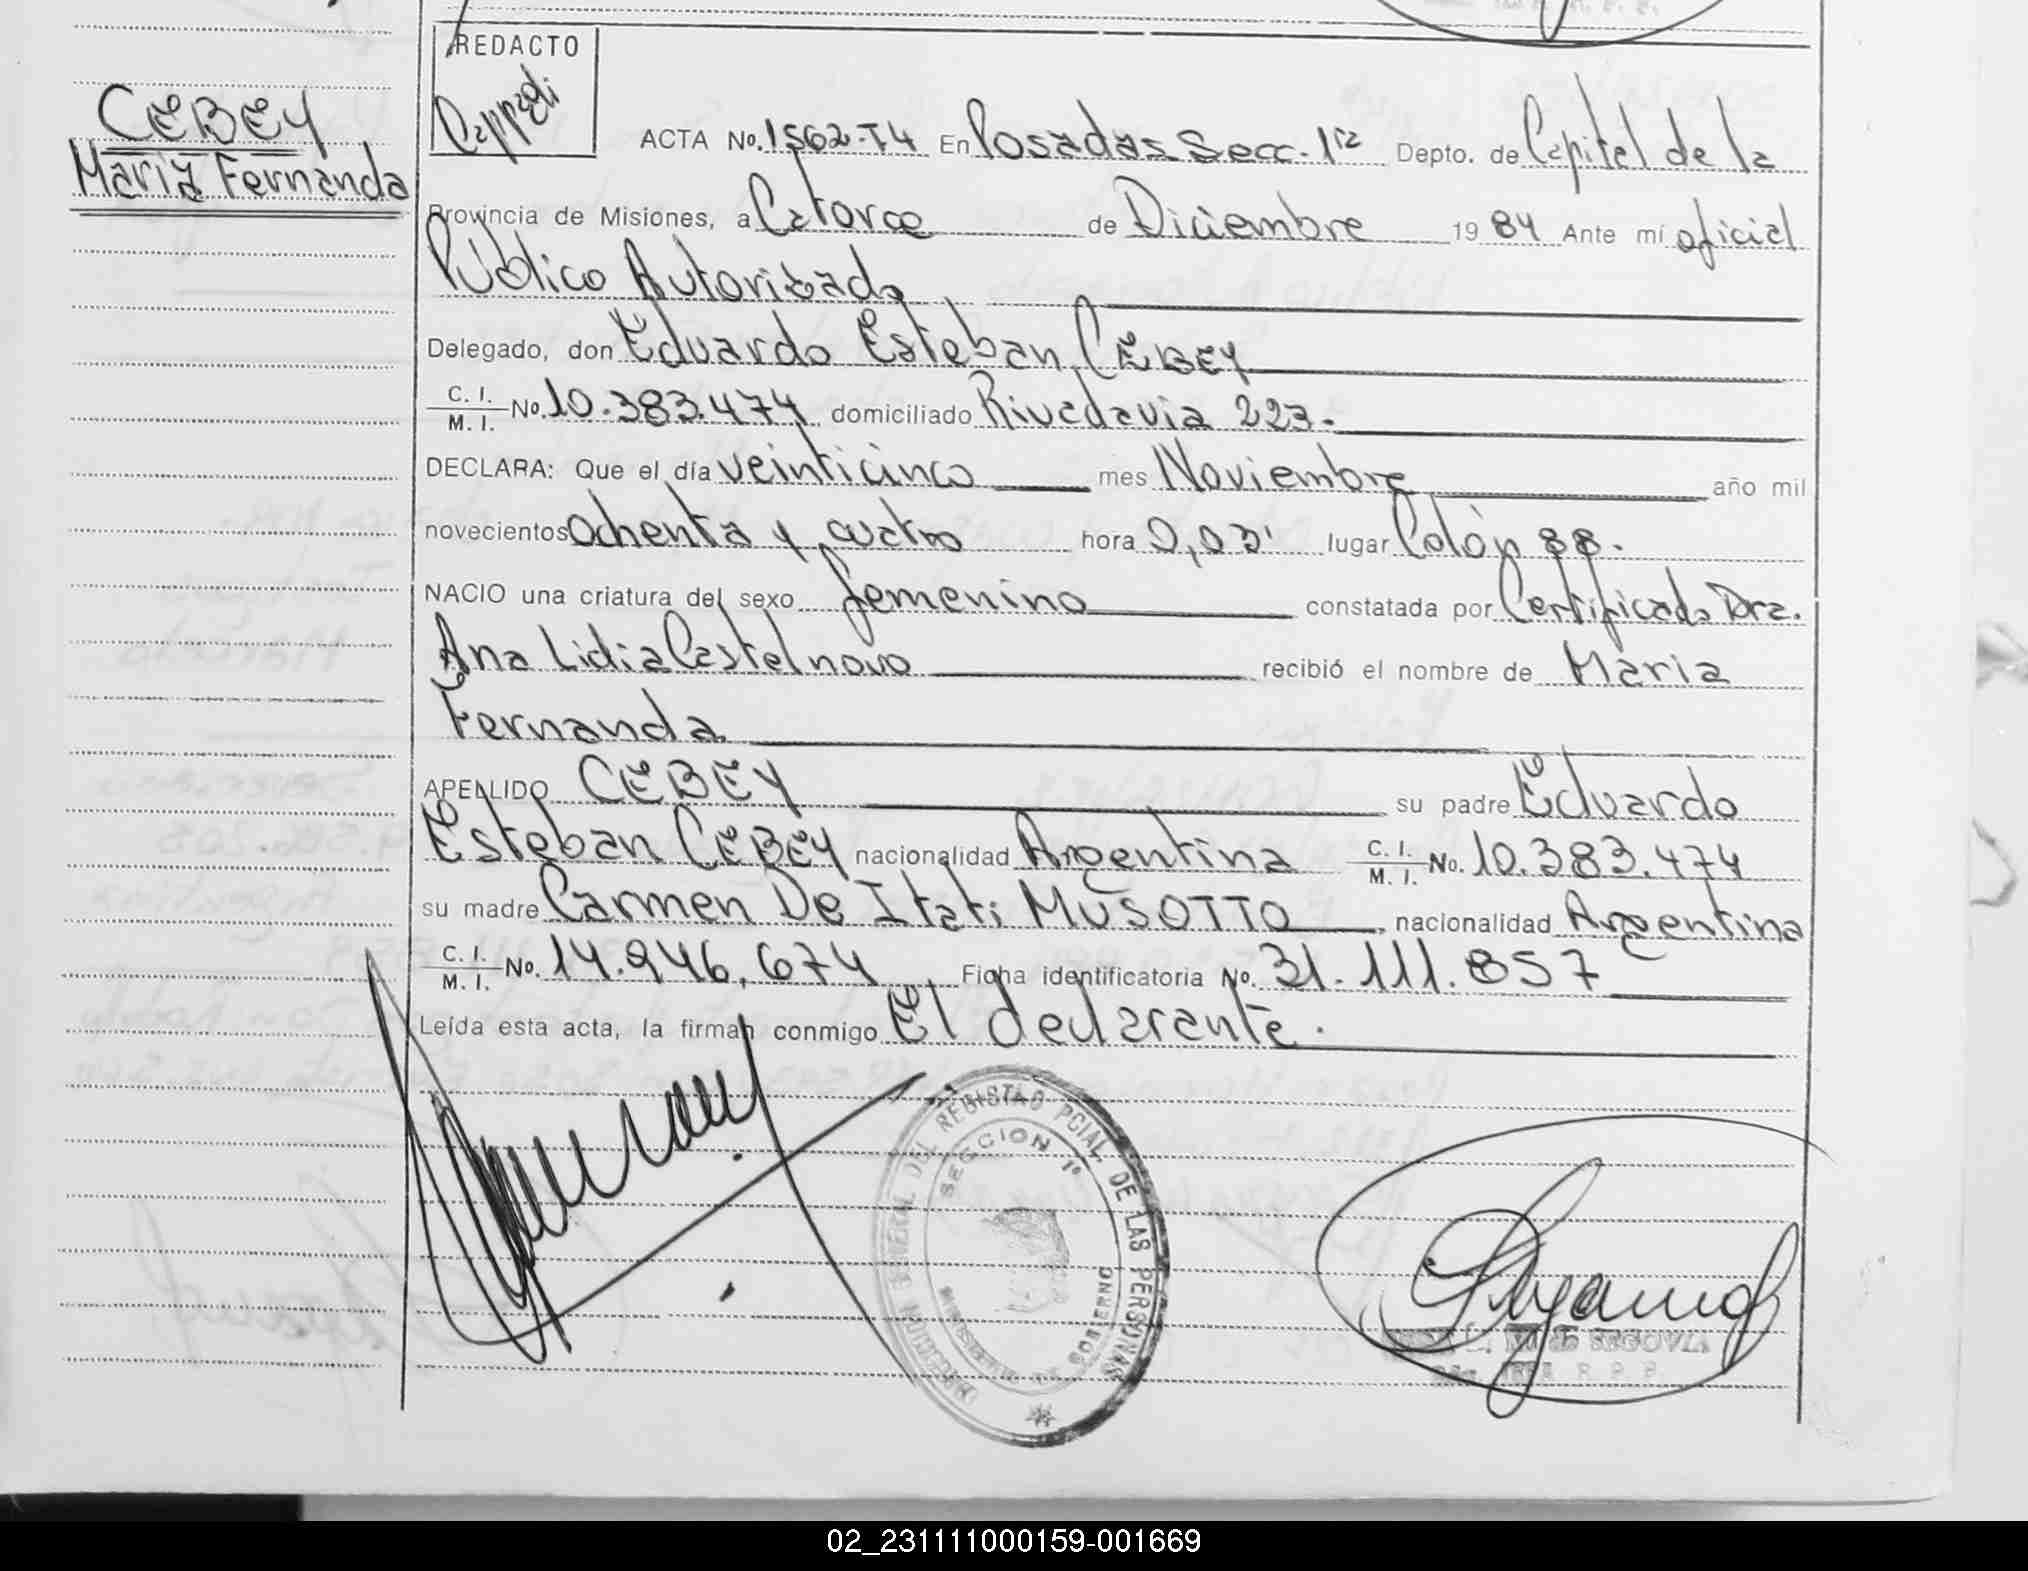 REDACTO
CEBEY
Maria Fernanda
ACTA No. 1562-T4 En Posadas Secc. 1ra Depto. de Capital de la
Provincia de Misiones, a Catorce de Diciembre 19 84 Ante mí oficial
Público Autorizado
Delegado, don Eduardo Esteban CEBEY
C. I. / M. I. No. 10.383.474 domiciliado Rivadavia 223.
DECLARA: Que el día veinticinco mes Noviembre año mil
novecientos ochenta y cuatro hora 0,03' lugar Colón 88.
NACIO una criatura del sexo femenino constatada por Certificado Dra.
Ana Lidia Castelnovo recibió el nombre de Maria
Fernanda
APELLIDO CEBEY su padre Eduardo
Esteban CEBEY nacionalidad Argentina C. I. / M. I. No. 10.383.474
su madre Carmen De Itati MUSOTTO, nacionalidad Argentina
C. I. / M. I. No. 14.946.674 Ficha identificatoria No. 31.111.857
Leída esta acta, la firman conmigo El declarante.
DIRECCION GENERAL DEL REGISTRO PCIAL. DE LAS PERSONAS
SECCION 1º
MINISTERIO DE GOBIERNO
SEGOVIA
R. P. P.
02_231111000159-001669